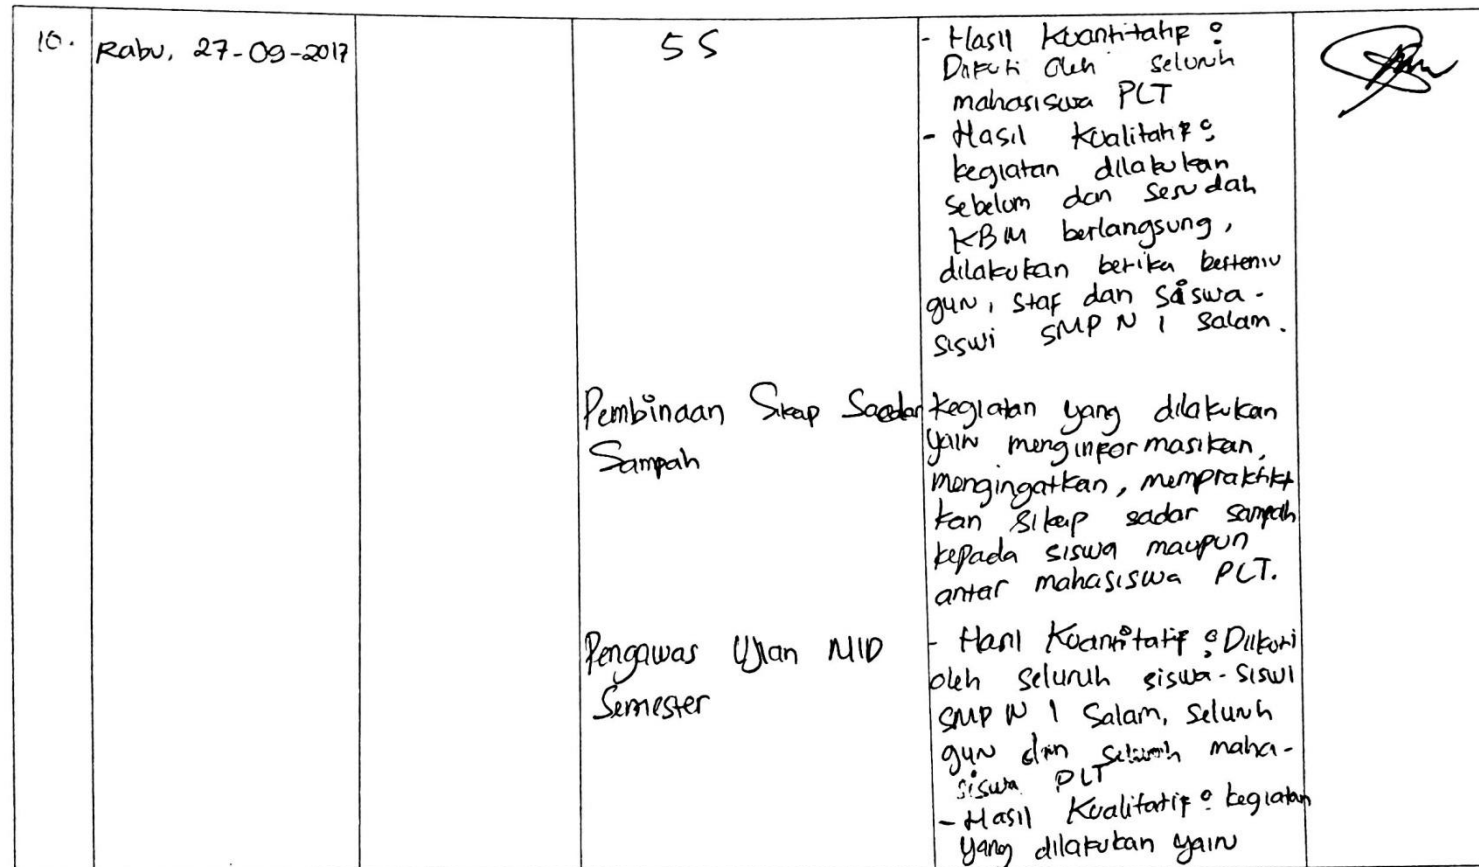 10.
Rabu, 27-09-2017
5 S
- Hasil Kuantitatif :
Diikuti oleh seluruh
mahasiswa PLT
- Hasil Kualitatif :
kegiatan dilakukan
sebelum dan sesudah
KBM berlangsung,
dilakukan ketika bertemu
guru, staf dan siswa-
siswi SMP N 1 Salam.
Pembinaan Sikap Saadar
Sampah
kegiatan yang dilakukan
yaitu menginformasikan,
mengingatkan, mempraktikt
kan sikap sadar sampah
kepada siswa maupun
antar mahasiswa PLT.
Pengawas Ujian MID
Semester
- Hasil Kuantitatif : Diikuti
oleh seluruh siswa-siswi
SMP N 1 Salam, seluruh
guru dan seluruh maha-
siswa PLT
- Hasil Kualitatif : kegiatan
yang dilakukan yaitu